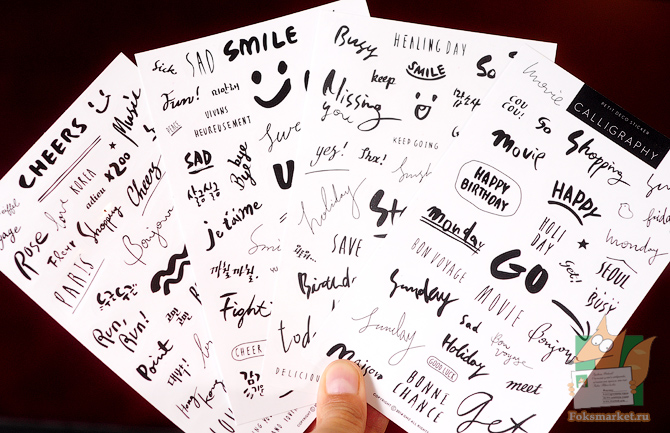 CHEERS
Music
love
KOREA
x200
adieu
Cheers
Rose
Fleur
Shopping
PARIS
Bonjour
Run,
Run!
Point
Hong
Kong
Sick
SAD
SMILE
Fun!
PEACE
VIVONS
HEUREUSEMENT
SAD
bye
Bye
je t'aime
Fight
CHEER
DELICIOUS
Busy
HEALING DAY
SMILE
keep
Missing
you
KEEP GOING
yes!
Thx!
holiday
SAVE
Birthday
Sunday
monday
BON VOYAGE
Sunday
GOOD LUCK
BONNE
CHANCE
movie
REPLE DECO STICKER
CALLIGRAPHY
COU
COU!
Go
Shopping
Movie
HAPPY
BIRTHDAY
HAPPY
HOLI
DAY
monday
GO
Get!
SEOUL
BUSY
MOVIE
Sad
Holiday
Bon
voyage
Bonjour
meet
Get
Foksmarket.ru